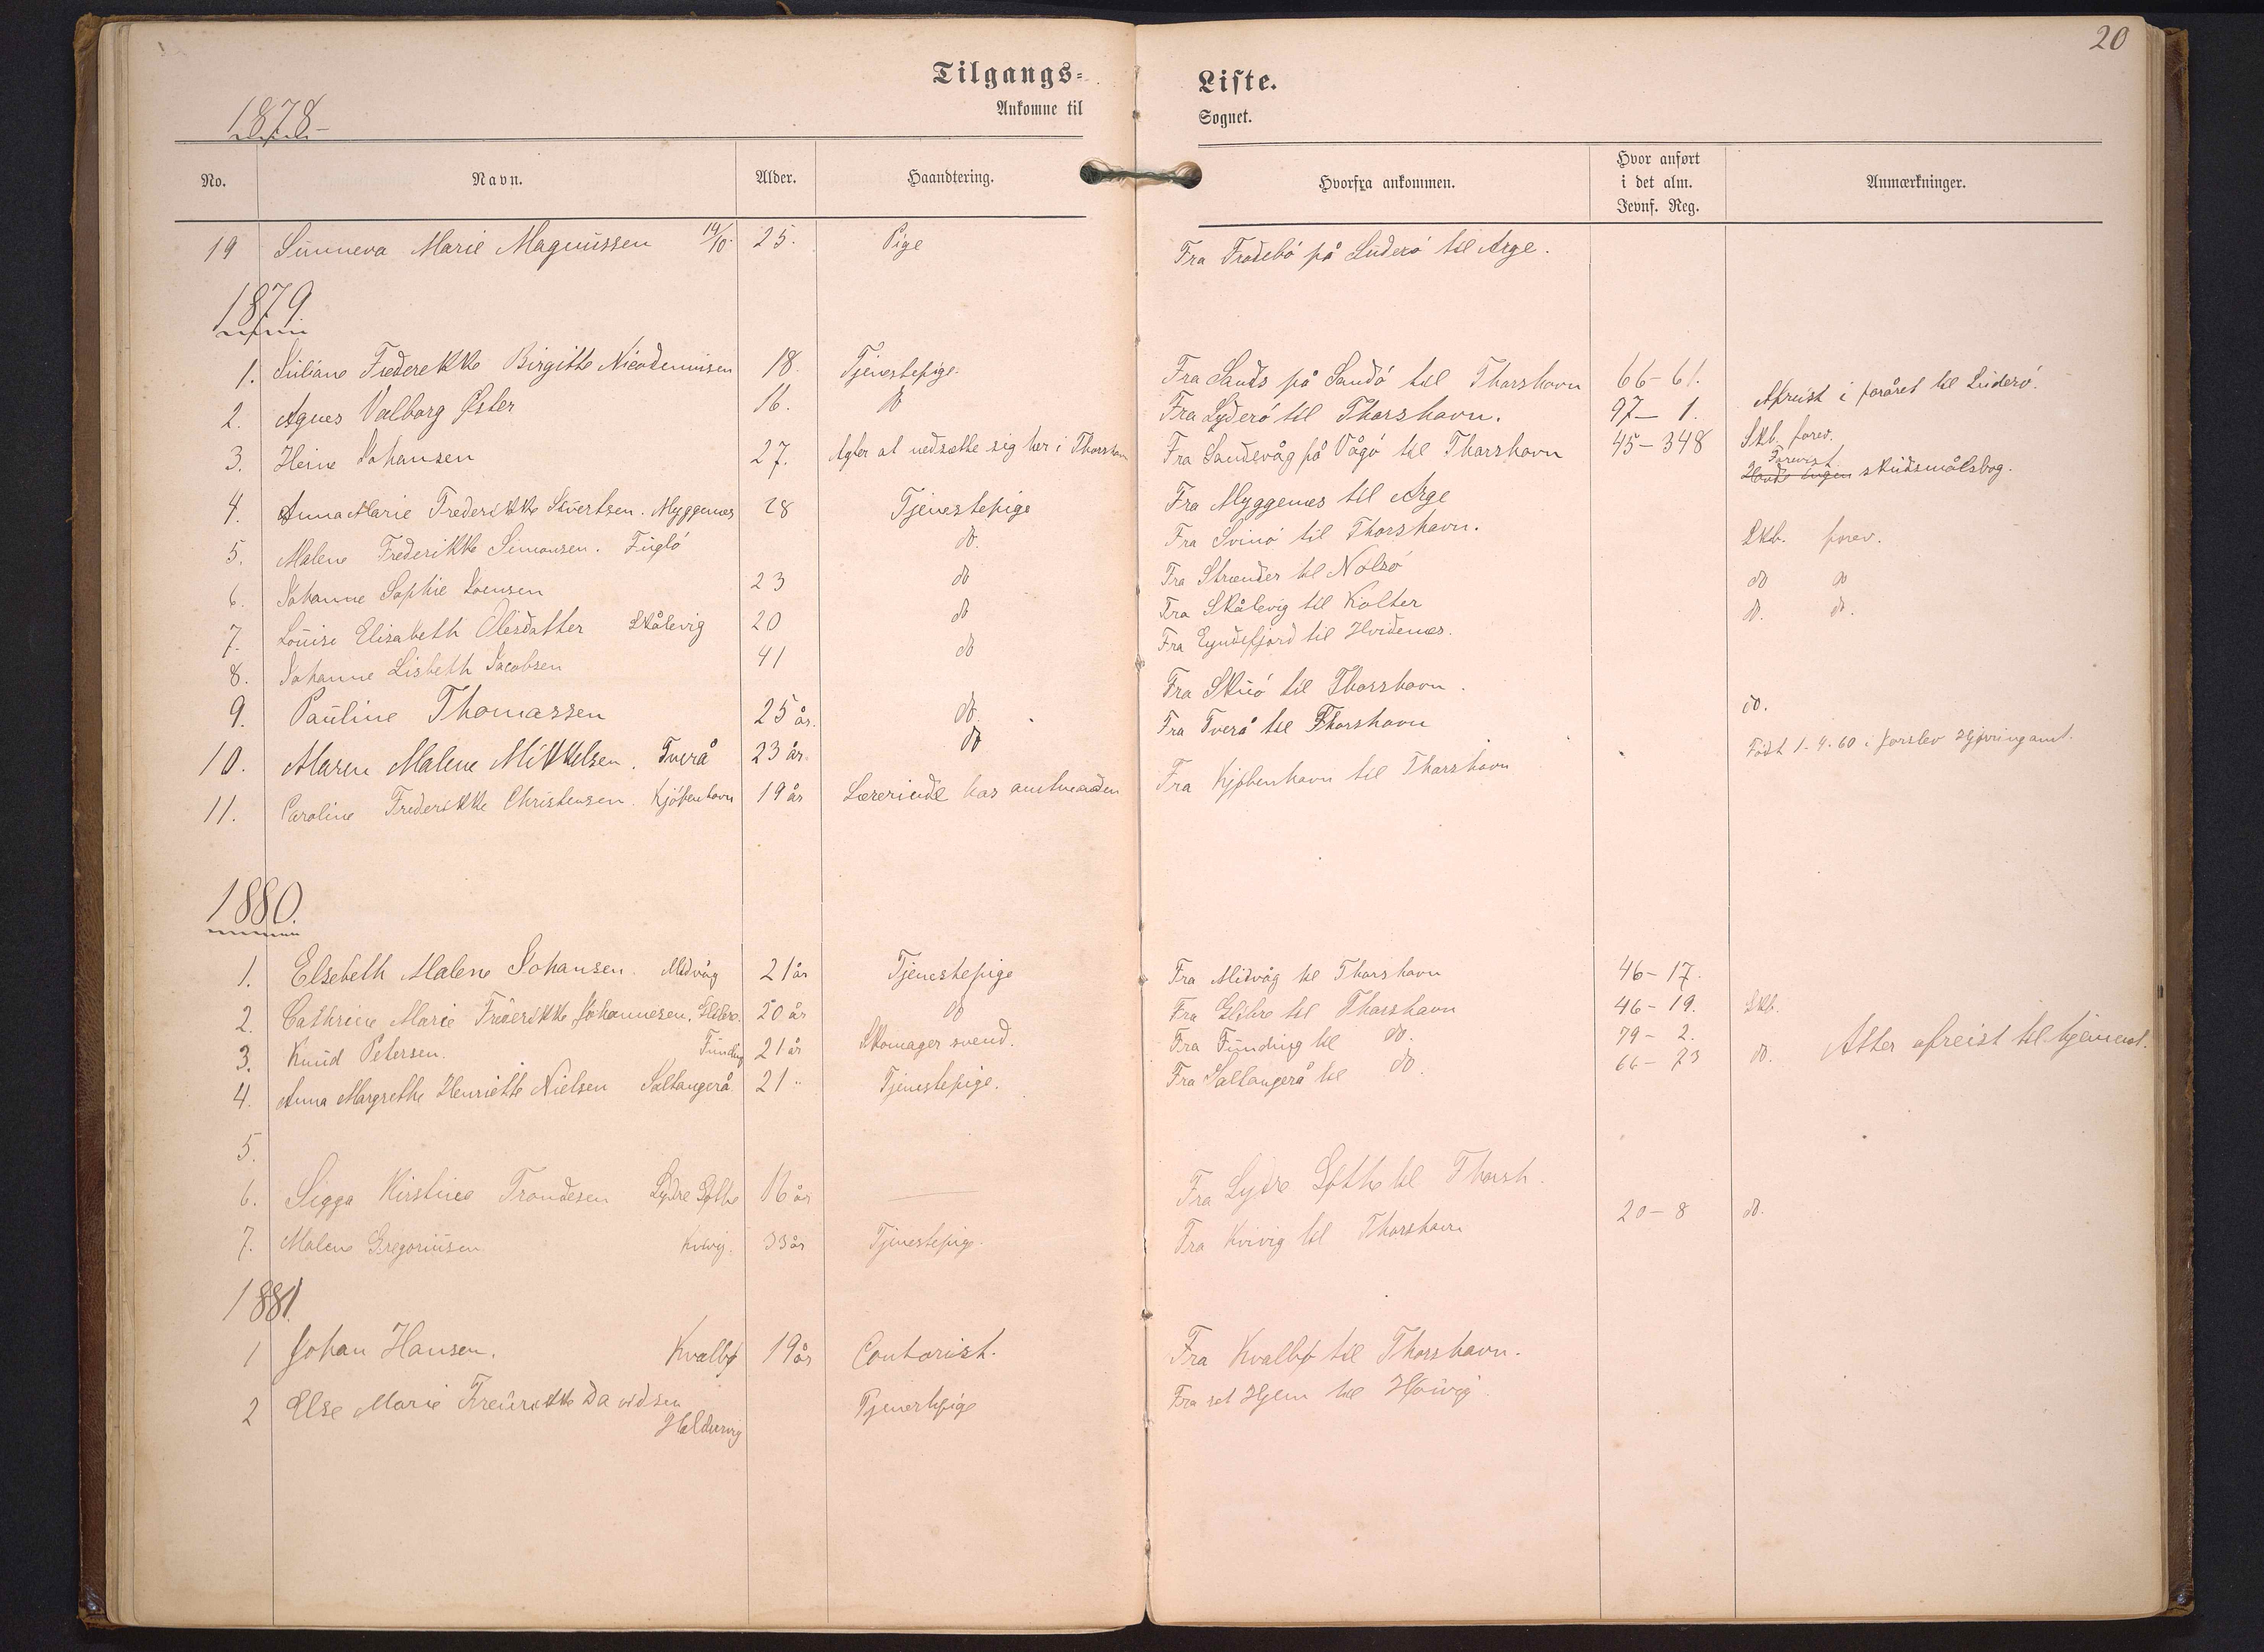 20
Tilgangs= Liste.
1878
Ankomne til Sognet.
No. Navn. Alder. Haandtering. Hvorfra ankommen. Hvor anført i det alm. Jevnf. Reg. Anmærkninger.
19 Sunneva Marie Magnussen 14/10 25. Pige Fra Frodebö på Suderö til Arge.
1879.
1. Juliane Frederekke Birgitte Nicodemusen 18. Tjenestepige. Fra Sands på Sandö til Thorshavn 66-61. Afreist i foråret til Suderö.
2. Agnes Valborg Øster 16. do Fra Syderö til Thorshavn. 97- 1.
3. Heine Johansen 27. Agter at nedsætte sig her i Thorshavn Fra Sandevåg på Vågö til Thorshavn 45-348 Skb. forev.
4. Anna Marie Frederikke Sivertsen. Myggenæs 28 Tjenestepige Fra Myggenæs til Arge Havde ingen Forevist skudsmålsbog.
5. Malene Frederikke Simonsen. Fuglö do. Fra Svinö til Thorshavn. Skb. forev.
6. Johanne Sophie Joensen 23 do Fra Strænder til Nolsö do do
7. Louise Elisabeth Olesdatter Skålevig 20 do Fra Skålevig til Kolter do. do.
8. Johanne Lisbeth Jacobsen 41 do Fra Eyndefjord til Hvidenæs.
9. Pauline Thomassen 25 år. do. Fra Skuö til Thorshavn. do.
10. Maren Malene Mikkelsen. Tverå 23 år. do Fra Tverå til Thorshavn
11. Caroline Frederikke Christensen. Kjöbenhavn 19 år Lærerinde hos amtmanden Fra Kjøbenhavn til Thorshavn Födt 1-4-60 i Jerslev Hjörringamt.
1880.
1. Elsebeth Malene Johansen. Midvåg 21 år Tjenestepige Fra Midvåg til Thorshavn 46-17.
2. Cathrine Marie Frederikke Johannesen. Glibre. 20 år do Fra Glibre til Thorshavn 46-19. Skb.
3. Knud Petersen. Funding 21 år Skomagersvend. Fra Funding til do. 79- 2.
4. Anna Margrethe Henriette Nielsen Saltangerå 21 " Tjenestepige. Fra Saltangerå til do. 66-73 do. Atter afreist til hjemmet.
5.
6. Sigga Kirstine Trondesen Sydre Gøthe 16 år Fra Sydre Gøthe til Thorsh.
7. Malene Gregoriusen Kvivig. 33 år Tjenestepige. Fra Kvivig til Thorshavn 20-8 do.
1881.
1 Johan Hansen. Kvalbø 19 år Contorist. Fra Kvalbø til Thorshavn.
2 Else Marie Frederikke Davidsen Haldervig Tjenestepige Fra set Hjem til Høivig